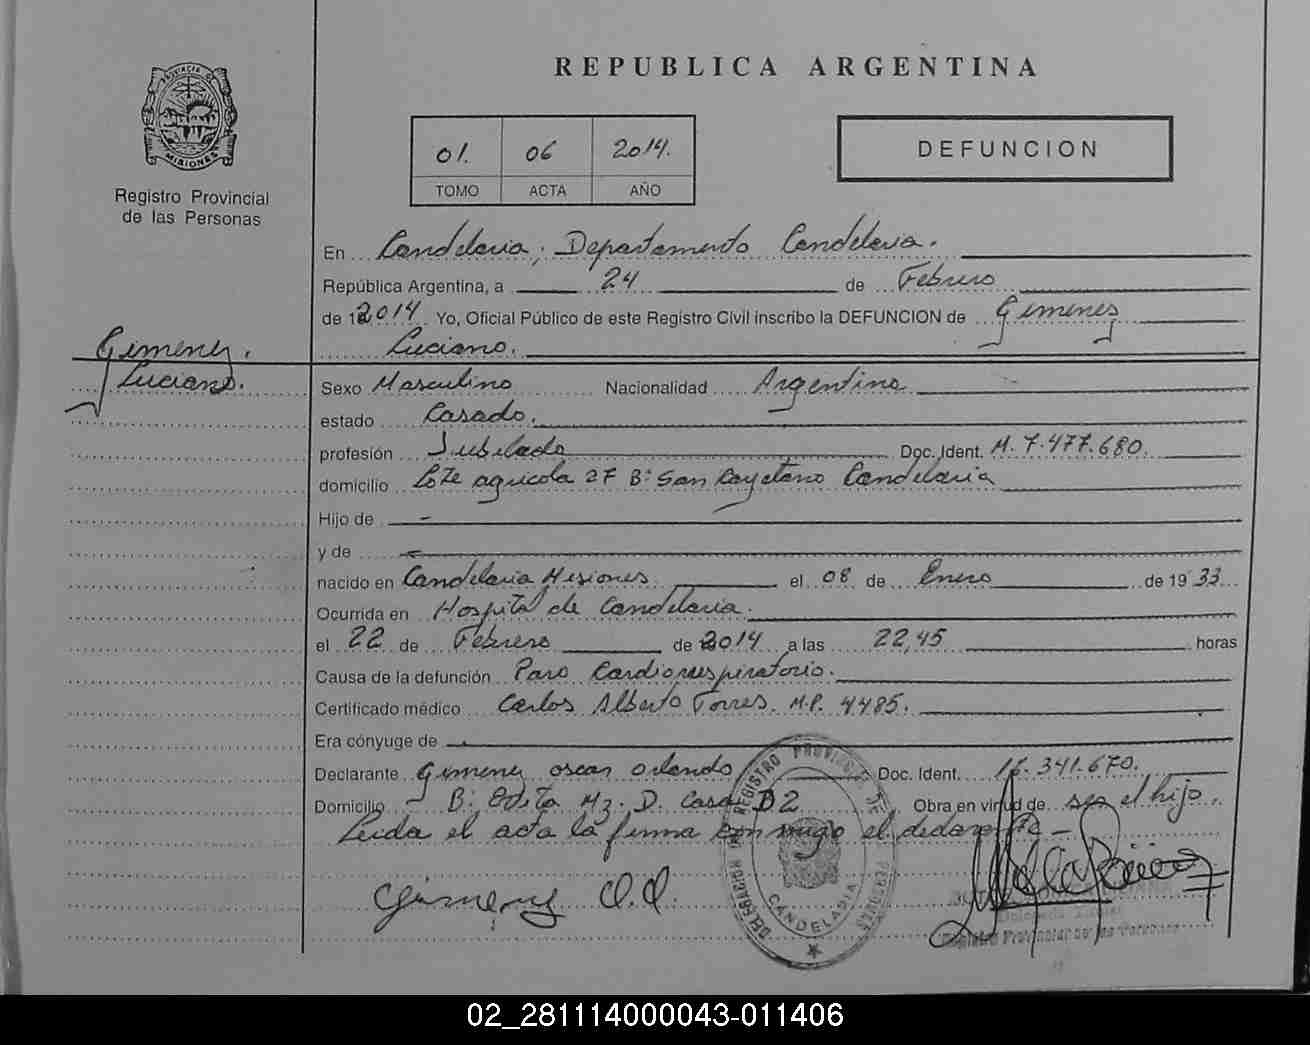 PROVINCIA DE
MISIONES
Registro Provincial
de las Personas
REPUBLICA ARGENTINA
01. 06 2014.
TOMO ACTA AÑO
DEFUNCION
En Candelaria, Departamento Candelaria.
República Argentina, a 24 de Febrero
de 2014 Yo, Oficial Público de este Registro Civil inscribo la DEFUNCION de Gimenez
Luciano.
Gimenez.
Luciano.
Sexo Masculino Nacionalidad Argentino
estado Casado.
profesión Jubilado Doc. Ident. M. 7.477.680.
domicilio Lote agricola 27 Bº San Cayetano Candelaria
Hijo de -
y de
nacido en Candelaria Misiones el 08 de Enero de 1933
Ocurrida en Hospital de Candelaria.
el 22 de Febrero de 2014 a las 22,45 horas
Causa de la defunción Paro Cardiorrespiratorio.
Certificado médico Carlos Alberto Torres. M.P. 4485.
Era cónyuge de
Declarante Gimenez oscar orlando Doc. Ident. 341.670.
Domicilio Bº Mz. D. Casa D2 Obra en virtud de ser el hijo.
Leida el acta la firma conmigo el declarante -
Gimenez O.O.
DELEGACION DE REGISTRO PROVINCIAL DE LAS PERSONAS
CANDELARIA
Registro Provincial de las Personas
02_281114000043-011406